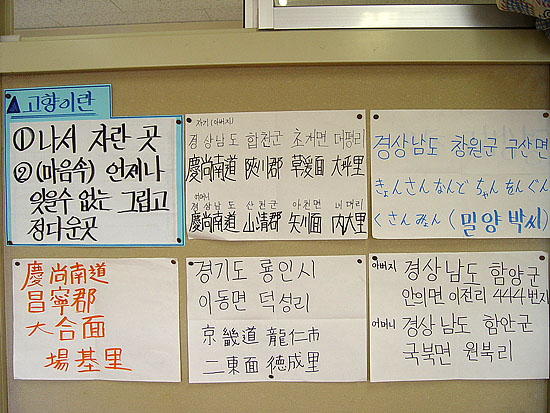 고향이란
①나서 자란 곳
②(마음속) 언제나
잊을수 없는 그립고
정다운곳
자기(아버지)
경상남도 합천군 초계면 대평리
慶尚南道 陜川郡 草溪面 大坪里
어머니
경상남도 산천군 시천면 내대리
慶尚南道 山清郡 矢川面 内大里
경상남도 창원군 구산면
きょんさんなんど ちゃんをんぐん
くさんみょん (밀양박씨)
慶尚南道
昌寧郡
大合面
場基里
경기도 룡인시
이동면 덕성리
京畿道 龍仁市
二東面 徳成里
아버지 경상남도 함양군
안의면 이전리 444번지
어머니 경상남도 함안군
국북면 원북리